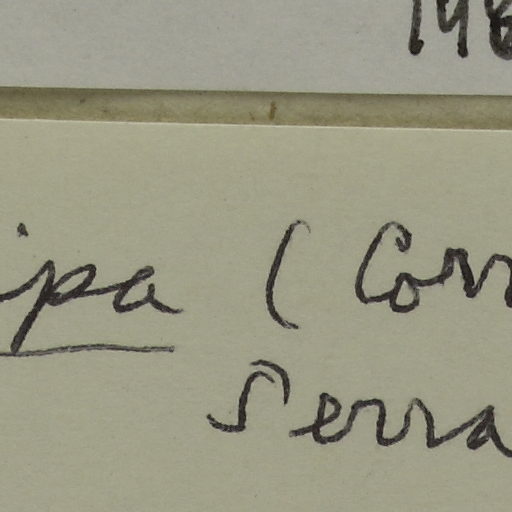 198
ipa (Corr
Serra